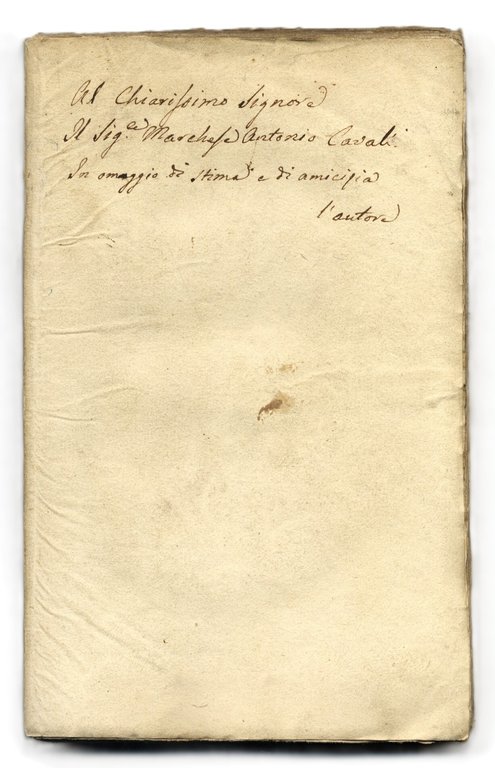 Al Chiarissimo Signore
Il Sig.re Marchese Antonio Cavalli
In omaggio di stima e di amicizia
l'autore